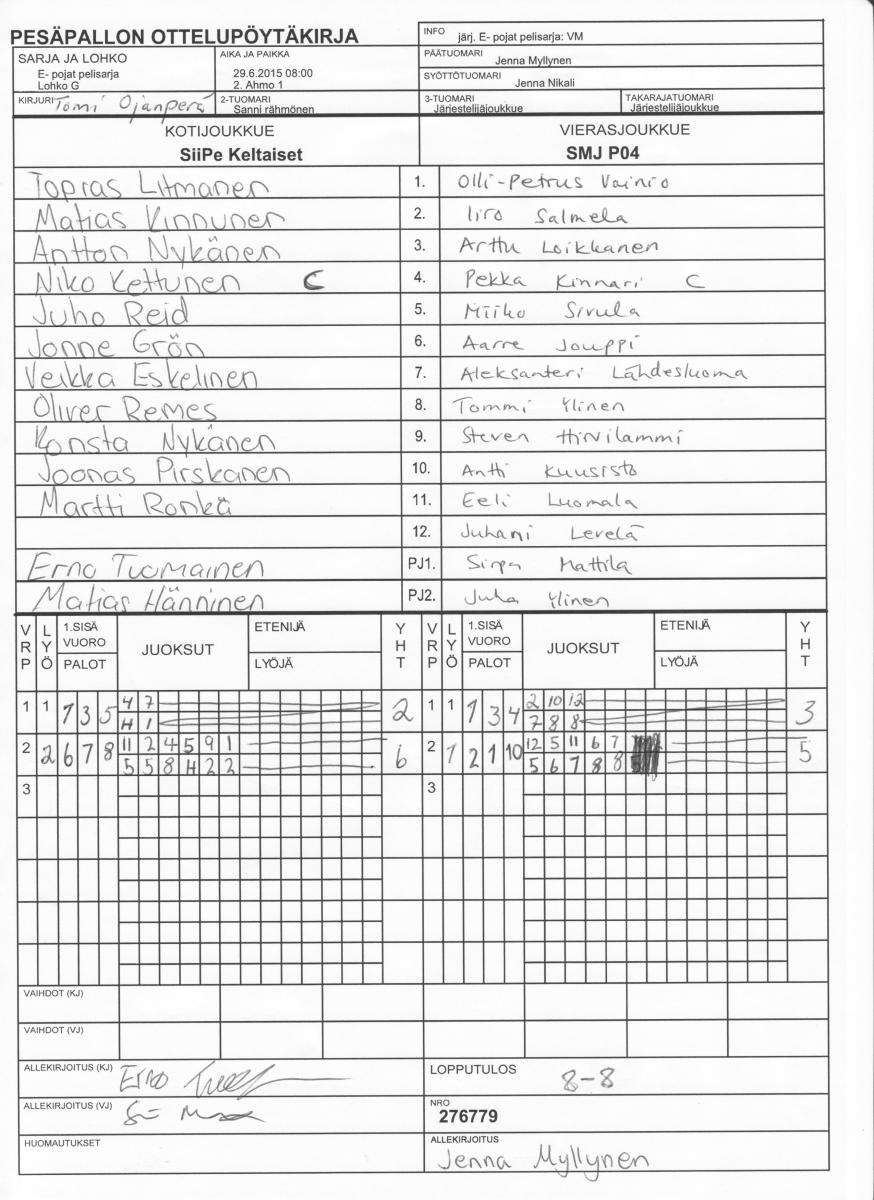 PESÄPALLON OTTELUPÖYTÄKIRJA
INFO järj. E- pojat pelisarja: VM
SARJA JA LOHKO
E- pojat pelisarja
Lohko G
AIKA JA PAIKKA
29.6.2015 08:00
2. Ahmo 1
PÄÄTUOMARI
Jenna Myllynen
SYÖTTÖTUOMARI
Jenna Nikali
KIRJURI Tomi Ojanperä
2-TUOMARI
Sanni rähmönen
3-TUOMARI
Järjestelijäjoukkue
TAKARAJATUOMARI
Järjestelijäjoukkue
KOTIJOUKKUE VIERASJOUKKUE
SiiPe Keltaiset SMJ P04
Topras Litmanen 1. Olli-Petrus Vainio
Matias Kinnunen 2. Iiro Salmela
Antton Nykänen 3. Arttu Loikkanen
Niko Kettunen C 4. Pekka Kinnari C
Juho Reid 5. Miiko Sivula
Jonne Grön 6. Aarre Jouppi
Veikka Eskelinen 7. Aleksanteri Lähdesluoma
Oliver Remes 8. Tommi Ylinen
Konsta Nykänen 9. Steven Hirvilammi
Joonas Pirskanen 10. Antti Kuusisto
Martti Ronkä 11. Eeli Luomala
12. Juhani Levelä
Erno Tuomainen PJ1. Sirpa Mattila
Matias Hänninen PJ2. Juha Ylinen
VRP LYÖ 1.SISÄ VUORO PALOT JUOKSUT ETENIJÄ LYÖJÄ YHT VRP LYÖ 1.SISÄ VUORO PALOT JUOKSUT ETENIJÄ LYÖJÄ YHT
1 1 1 3 5 4 7 2 1 1 1 3 4 2 10 12 3
H 1 7 8 8
2 2 6 7 8 11 2 4 5 9 1 6 2 1 2 1 10 12 5 11 6 7 5
5 5 8 H 2 2 5 6 7 8 8
3 3
VAIHDOT (KJ)
VAIHDOT (VJ)
ALLEKIRJOITUS (KJ) Erno
LOPPUTULOS 8-8
ALLEKIRJOITUS (VJ)
NRO
276779
HUOMAUTUKSET
ALLEKIRJOITUS
Jenna Myllynen